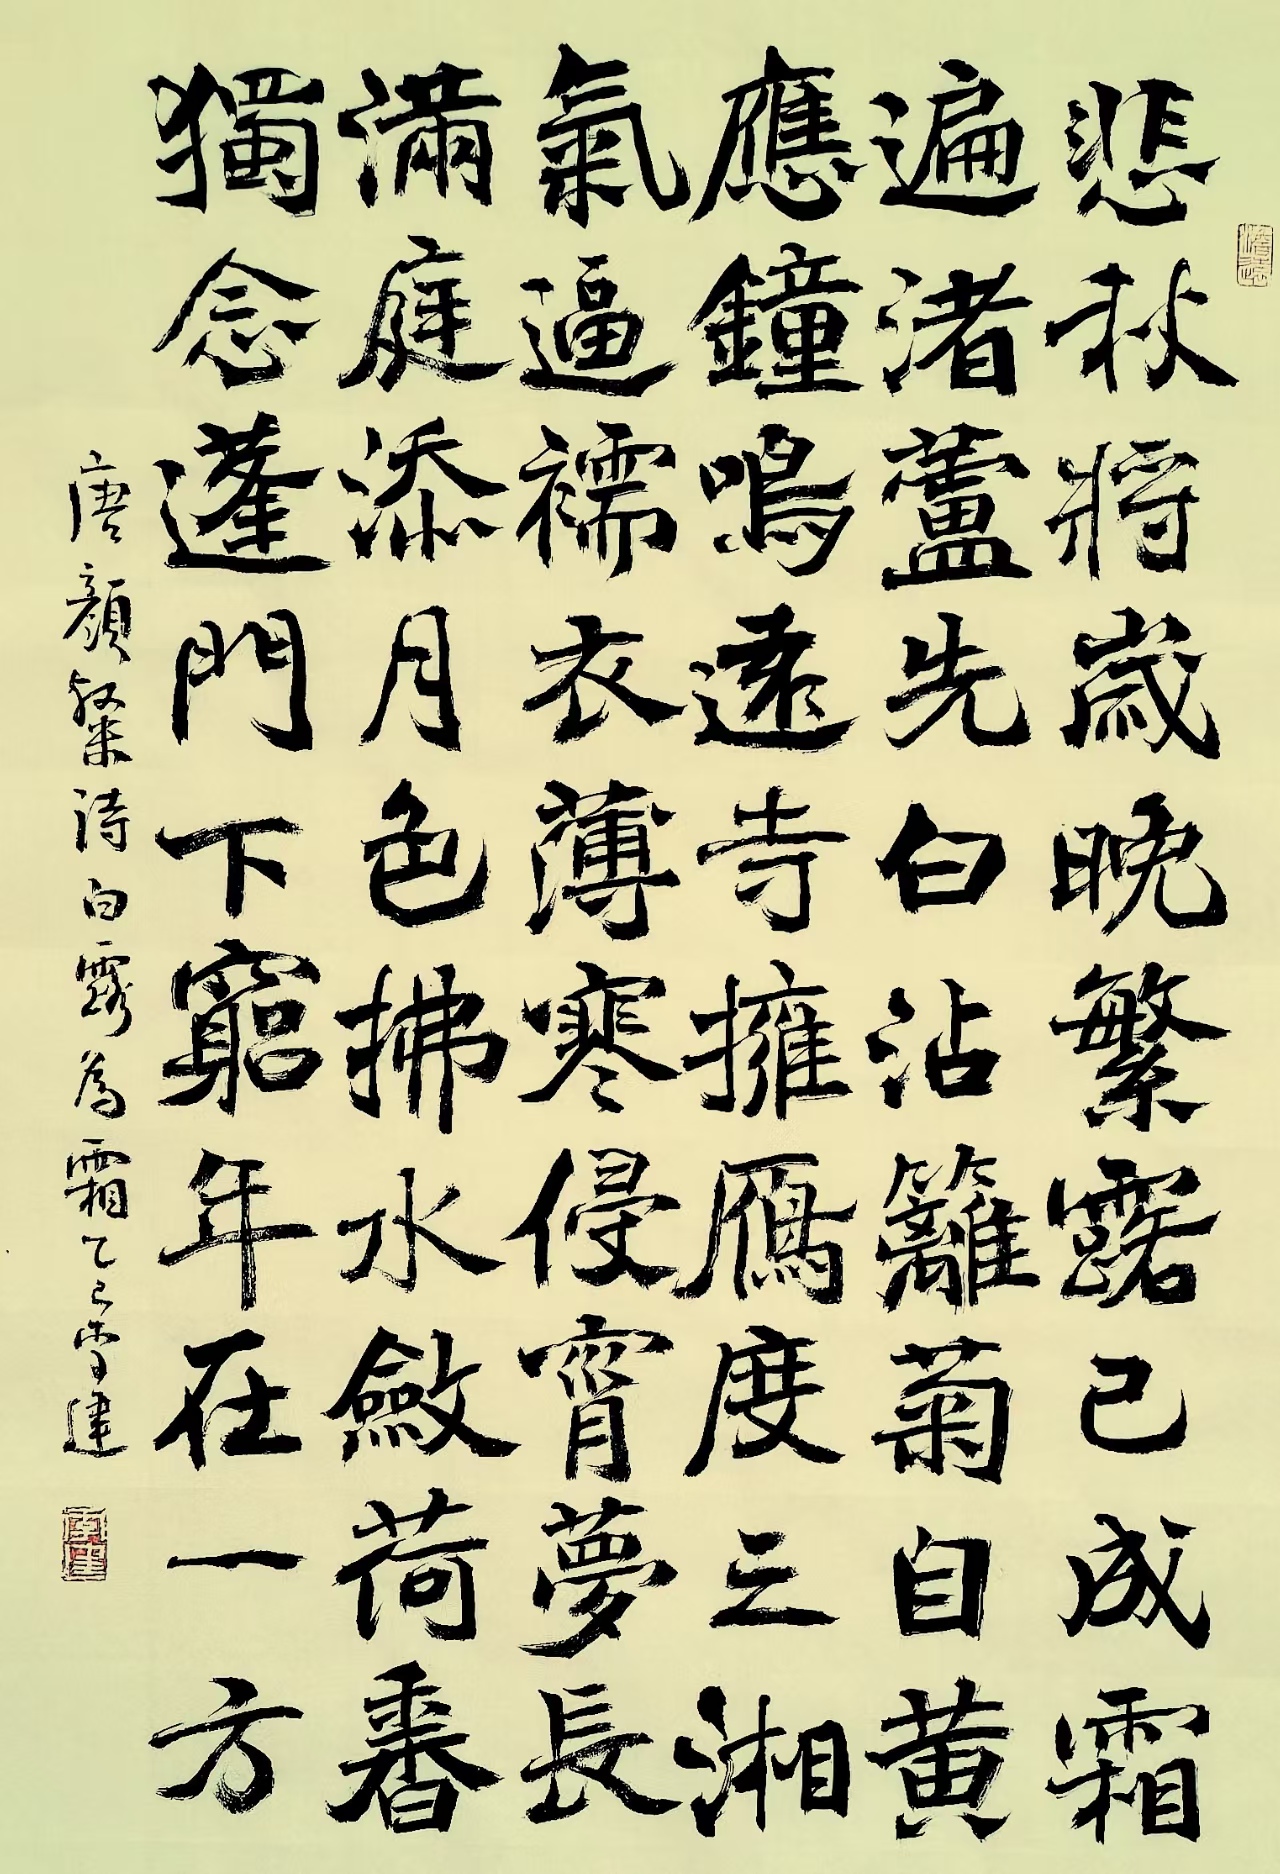 悲秋將歲晚繁露已成霜
遍渚蘆先白沾籬菊自黃
應鐘鳴遠寺擁鴈度三湘
氣逼襦衣薄寒侵宵夢長
滿庭添月色拂水斂荷香
獨念蓬門下窮年在一方
唐顏粲詩白露為霜乙巳李建
李建